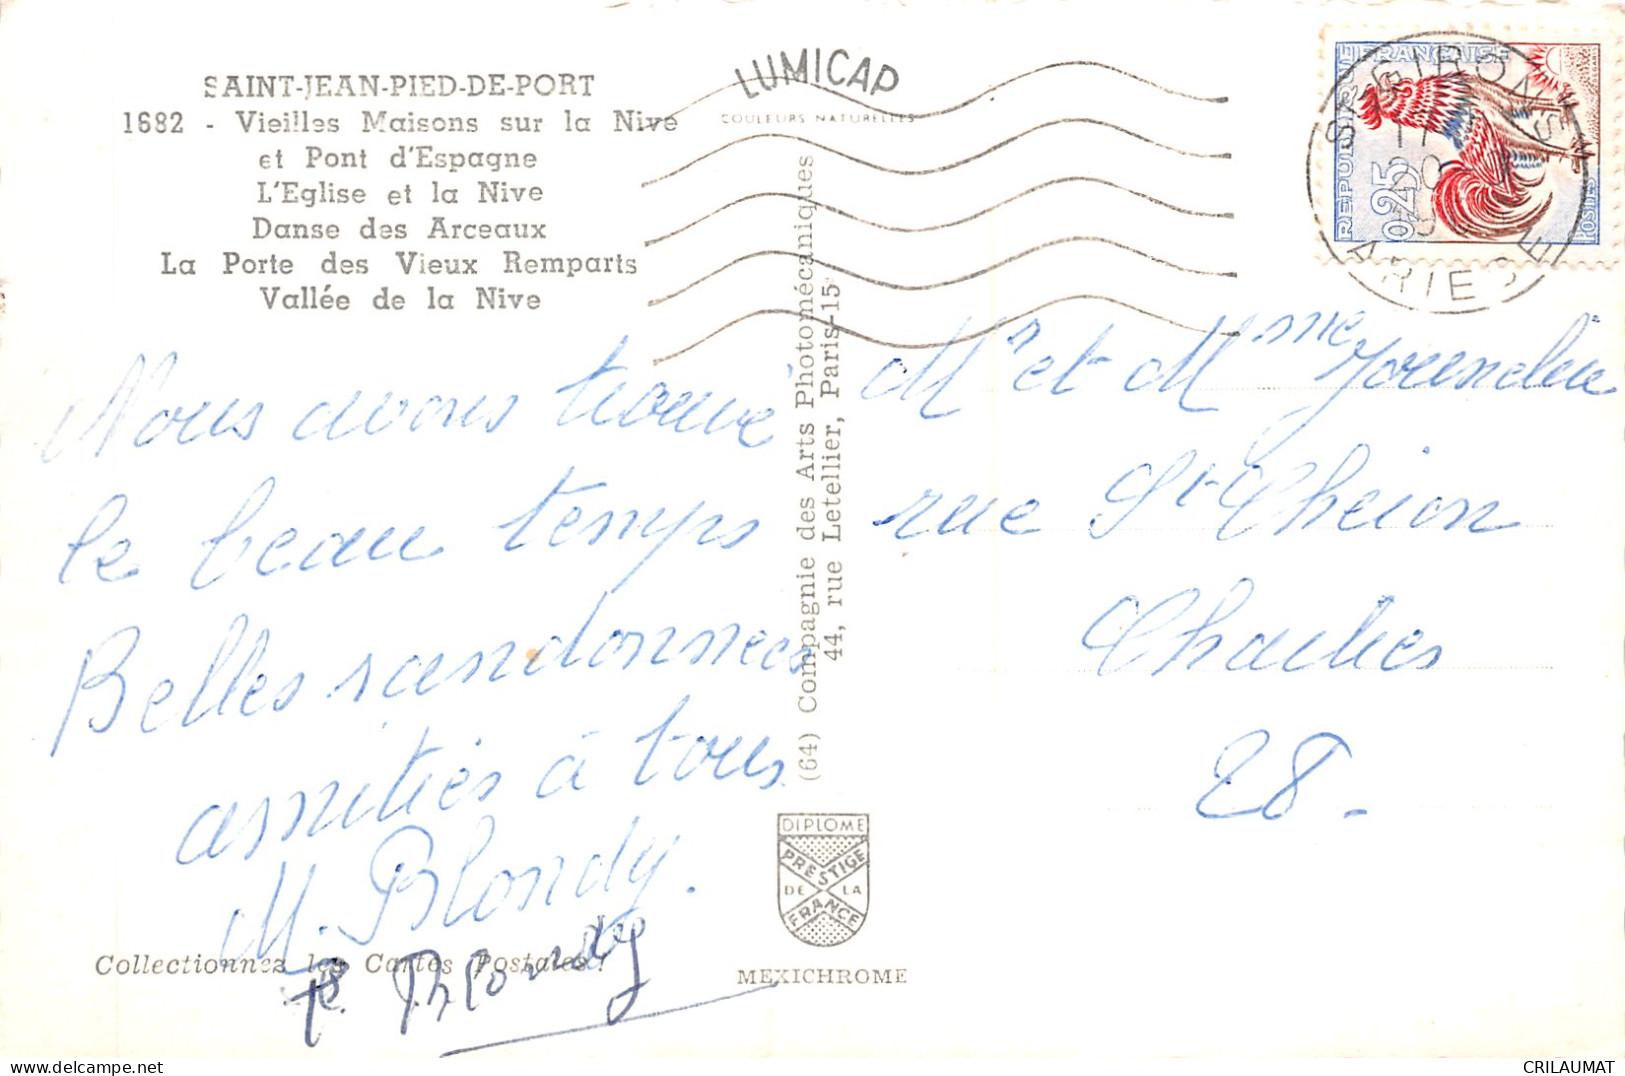 SAINT-JEAN-PIED-DE-PORT
1682 - Vieilles Maisons sur la Nive
et Pont d'Espagne
L'Eglise et la Nive
Danse des Arceaux
La Porte des Vieux Remparts
Vallée de la Nive
LUMICAP
COULEURS NATURELLES
REPUBLIQUE FRANÇAISE
0,25
POSTES
ST GIRONS
ARIEGE
Nous avons trouvé
le beau temps
Belles randonnées
amitiés à tous
M. Blondy.
Blondy
(64) Compagnie des Arts Photomécaniques
44, rue Letellier, Paris-15e
Mr et Mme
rue St Chéron
Chartres
28.
DIPLOME
PRESTIGE
DE LA
FRANCE
Collectionnez les Cartes Postales!
MEXICHROME
CRILAUMAT